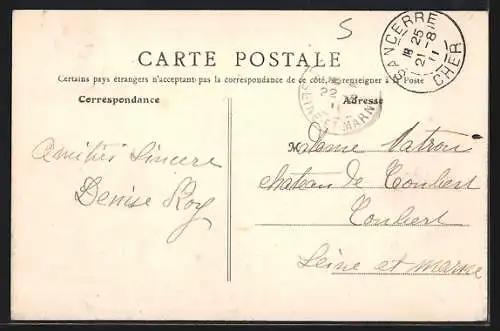 S
SANCERRE
18 25
21 -8
11
CHER
CARTE POSTALE
Certains pays étrangers n'acceptant pas la correspondance de ce côté, se renseigner à la Poste
22
SEINE ET MARNE
Correspondance
Adresse
Madame Matron
Amitiés Sincère
château de Coubert
Denise Roy
Coubert
Seine et Marne